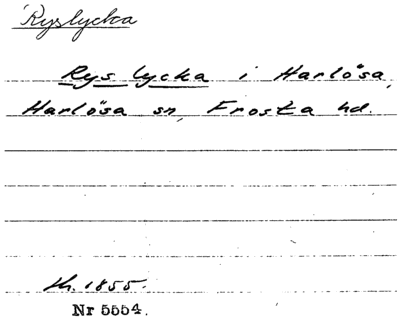 Ryslycka
Rys lycka i Harlösa,
Harlösa sn, Frosta hd.
1855.
Nr 5554.